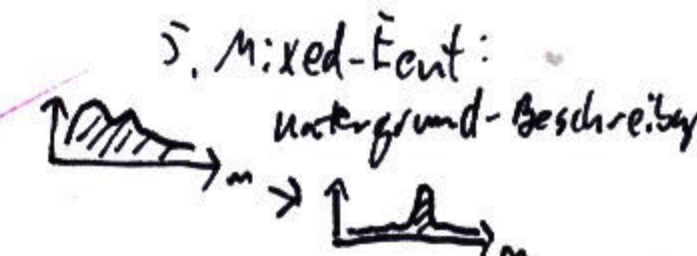 5. Mixed-Event:
Untergrund-Beschreibung
m
m